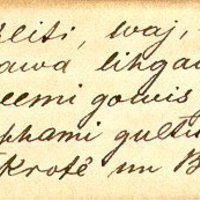 kliti, waj,
awa lihgaw
eemi gowis
phami gultu
Krotê un B